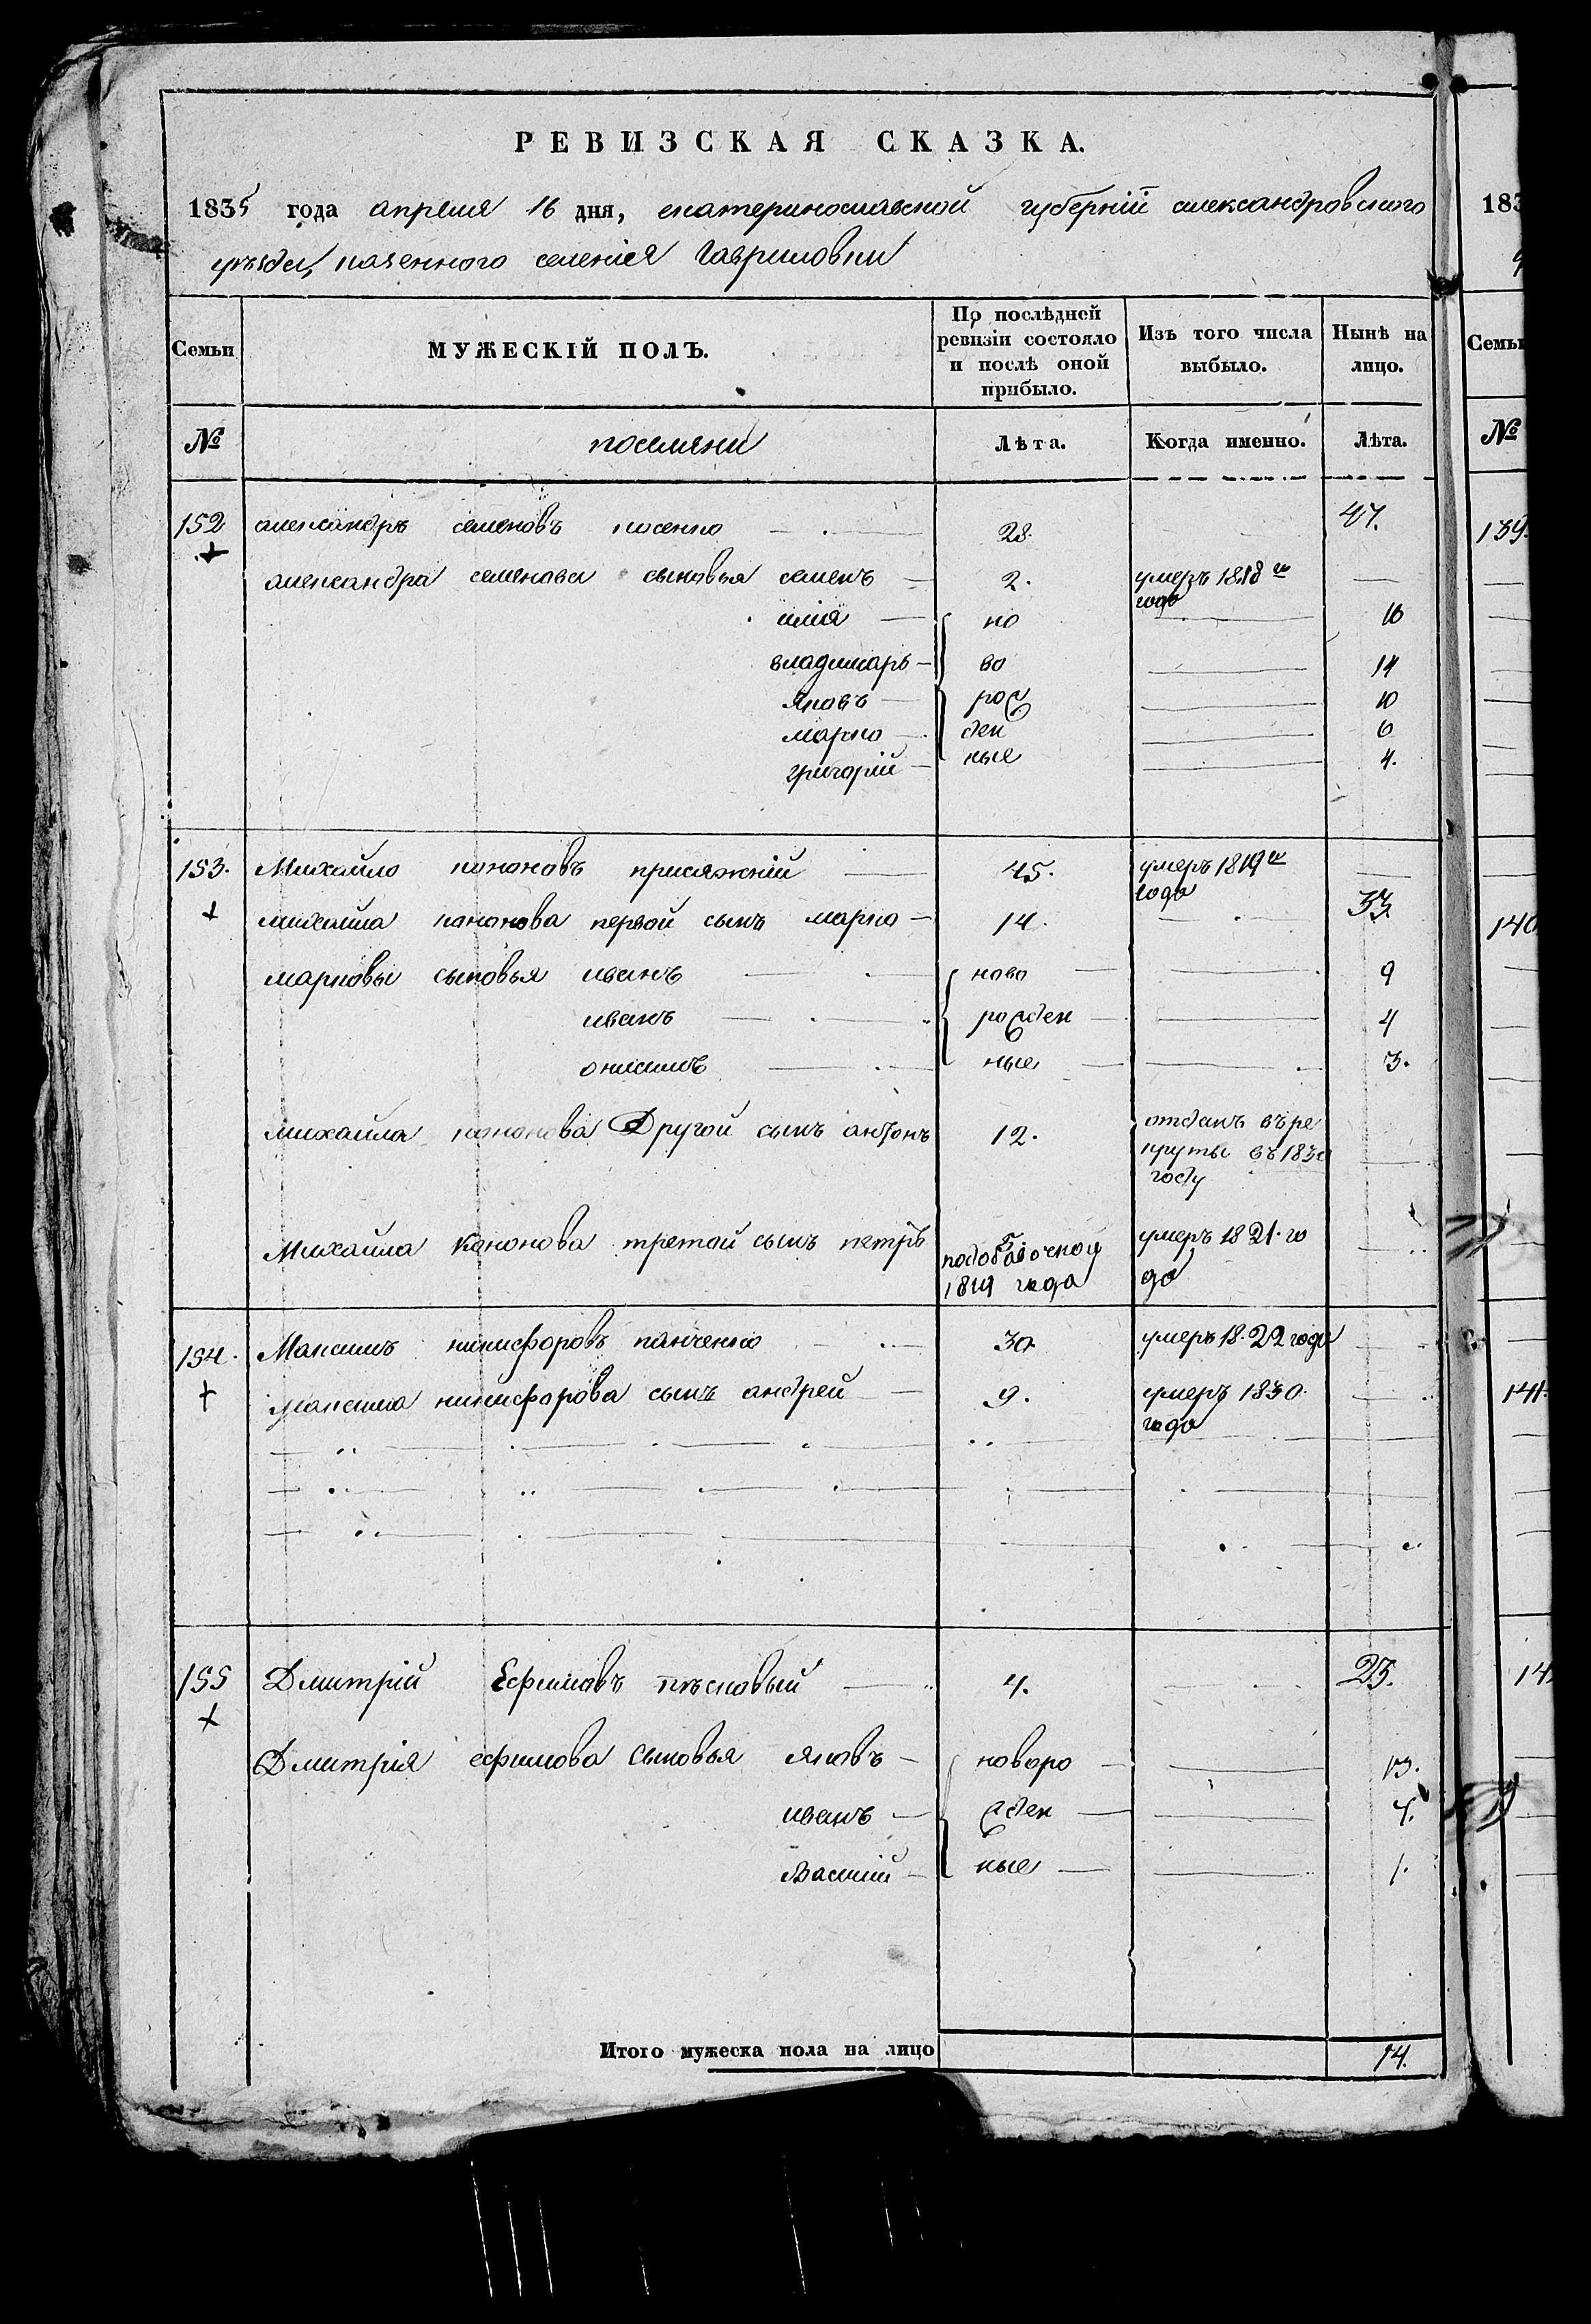 РЕВИЗСКАЯ СКАЗКА.
1835 года апреля 16 дня, екатеринославской губерніи александровского
уезда, казенного селенія Гавриловки
Семьи МУЖЕСКІЙ ПОЛЪ. По послѣдней ревизіи состояло и послѣ оной прибыло. Изъ того числа выбыло. Нынѣ на лицо.
№ поселяни Лѣта. Когда именно. Лѣта.
152 александръ семеновъ косенко 28. 47.
александра семенова сыновья семенъ 2. умеръ 1818 го
года
илія но 16
владимаръ во 14
яковъ рож 10
марко ден 6
григорій ные 4.
153. Михайло кононовъ присяжній 45. умеръ 1819 го
года
михаила кононова первой сынъ марко 14. 33
марковы сыновья иванъ ново 9
иванъ рожден 4
онисимъ ные 3.
михаила кононова Другой сынъ антонъ 12. отданъ въ ре
круты въ 183
году
Михаила Кононова третой сынъ петръ умеръ 1821. го
да
года
154. Максимъ никифоровъ панченко 30 умеръ 18.22 года
максима никифорова сынъ андрей 9. умеръ 1830.
года
155 Дмитрій Ефимовъ пѣсковый 4. 23.
Дмитрія ефимова сыновья яковъ новоро 13.
иванъ жден 4.
Василій ные 1.
Итого мужеска пола на лицо 14.
183
Семьи
№
139.
140
141.
14